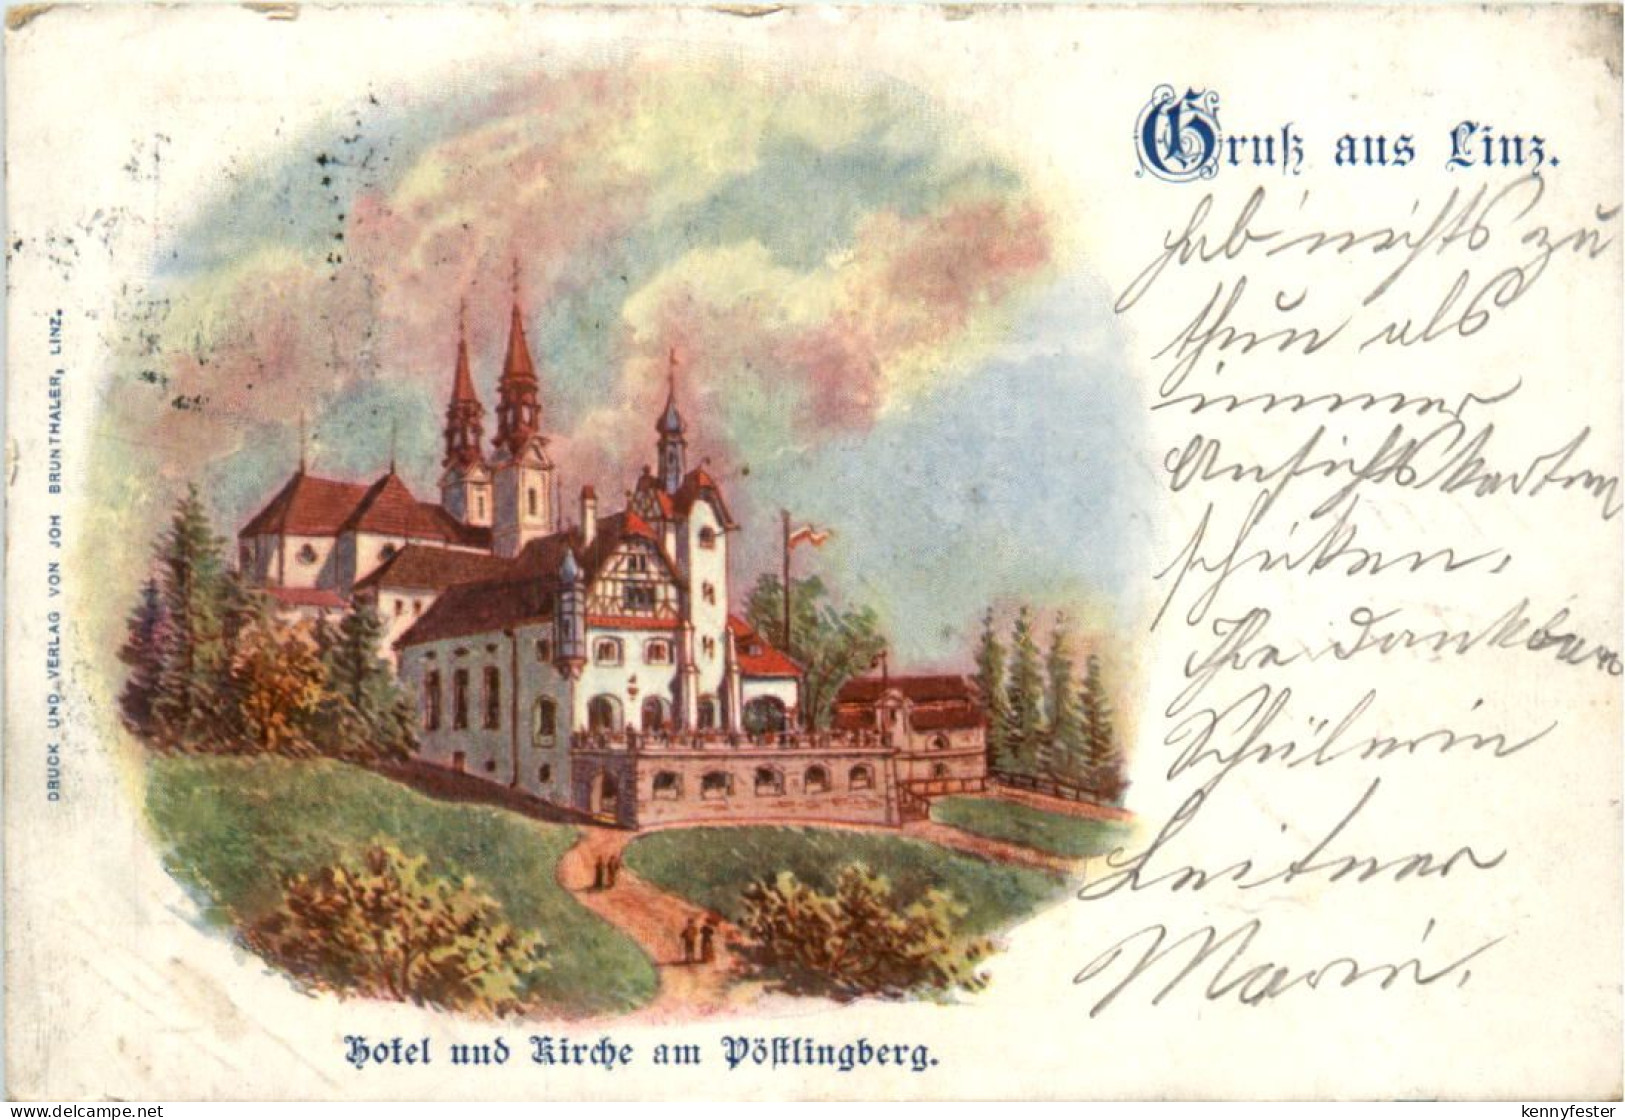 Gruß aus Linz.
hab' nichts zu
thun als
immer
Ansichtskarten
schicken.
Ihre dankbare
Schülerin
Leitner
Marie.
DRUCK UND VERLAG VON JOH BRUNTHALER, LINZ.
Hotel und Kirche am Pöstlingberg.
delcampe.net
kennyfester